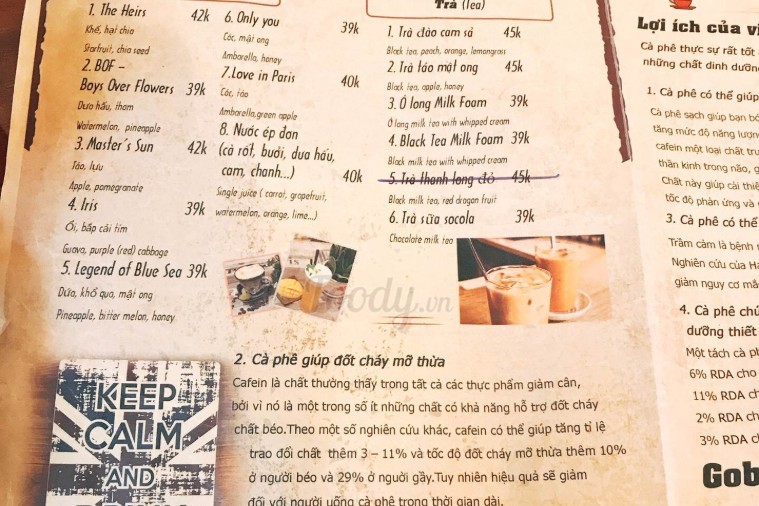 1. The Heirs 42k
Khế, hạt chia
Starfruit, chia seed
2. BOF –
Boys Over Flowers 39k
Dưa hấu, thơm
Watermelon, pineapple
3. Master's Sun 42k
Táo, lựu
Apple, pomegranate
4. Iris 39k
Ổi, bắp cải tím
Guava, purple (red) cabbage
5. Legend of Blue Sea 39k
Dứa, khổ qua, mật ong
Pineapple, bitter melon, honey
6. Only you 39k
Cóc, mật ong
Ambarella, honey
7. Love in Paris 40k
Cóc, táo
Ambarella, green apple
8. Nước ép đơn
(cà rốt, bưởi, dưa hấu,
cam, chanh...) 40k
Single juice ( carrot, grapefruit,
watermelon, orange, lime...)
Trà (Tea)
1. Trà đào cam sả 45k
Black tea, peach, orange, lemongrass
2. Trà táo mật ong 45k
Black tea, apple, honey
3. Ô long Milk Foam 39k
Ô long milk tea with whipped cream
4. Black Tea Milk Foam 39k
Black milk tea with whipped cream
5. Trà thanh long đỏ 45k
Black milk tea, red dragon fruit
6. Trà sữa socola 39k
Chocolate milk tea
Foody.vn
KEEP
CALM
AND
2. Cà phê giúp đốt cháy mỡ thừa
Cafein là chất thường thấy trong tất cả các thực phẩm giảm cân,
bởi vì nó là một trong số ít những chất có khả năng hỗ trợ đốt cháy
chất béo.Theo một số nghiên cứu khác, cafein có thể giúp tăng tỉ lệ
trao đổi chất thêm 3 – 11% và tốc độ đốt cháy mỡ thừa thêm 10%
ở người béo và 29% ở người gầy.Tuy nhiên hiệu quả sẽ giảm
đối với người uống cà phê trong thời gian dài.
Lợi ích của vi
Cà phê thực sự rất tốt
những chất dinh dưỡng
1. Cà phê có thể giúp
Cà phê sạch giúp bạn bớ
tăng mức độ năng lượng
cafein một loại chất tru
thần kinh trong não, g
Chất này giúp cải thiệ
tốc độ phản ứng và
3. Cà phê có thể
Trầm cảm là bệnh
Nghiên cứu của Ha
giảm nguy cơ mắ
4. Cà phê chú
dưỡng thiết
Một tách cà ph
6% RDA cho
11% RDA ch
2% RDA cho
3% RDA ch
Gob